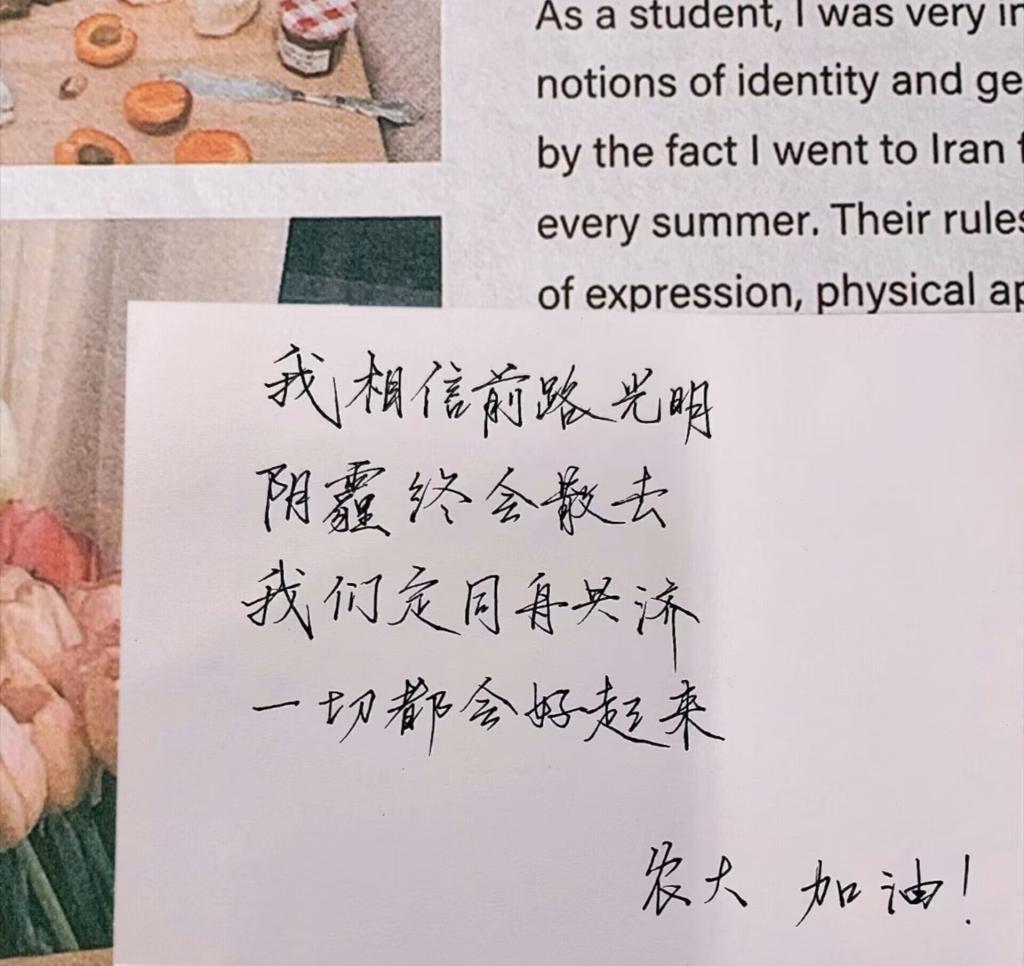 As a student, I was very in
notions of identity and ge
by the fact I went to Iran f
every summer. Their rules
of expression, physical ap
我相信前路光明
阴霾终会散去
我们定同舟共济
一切都会好起来
农大 加油!